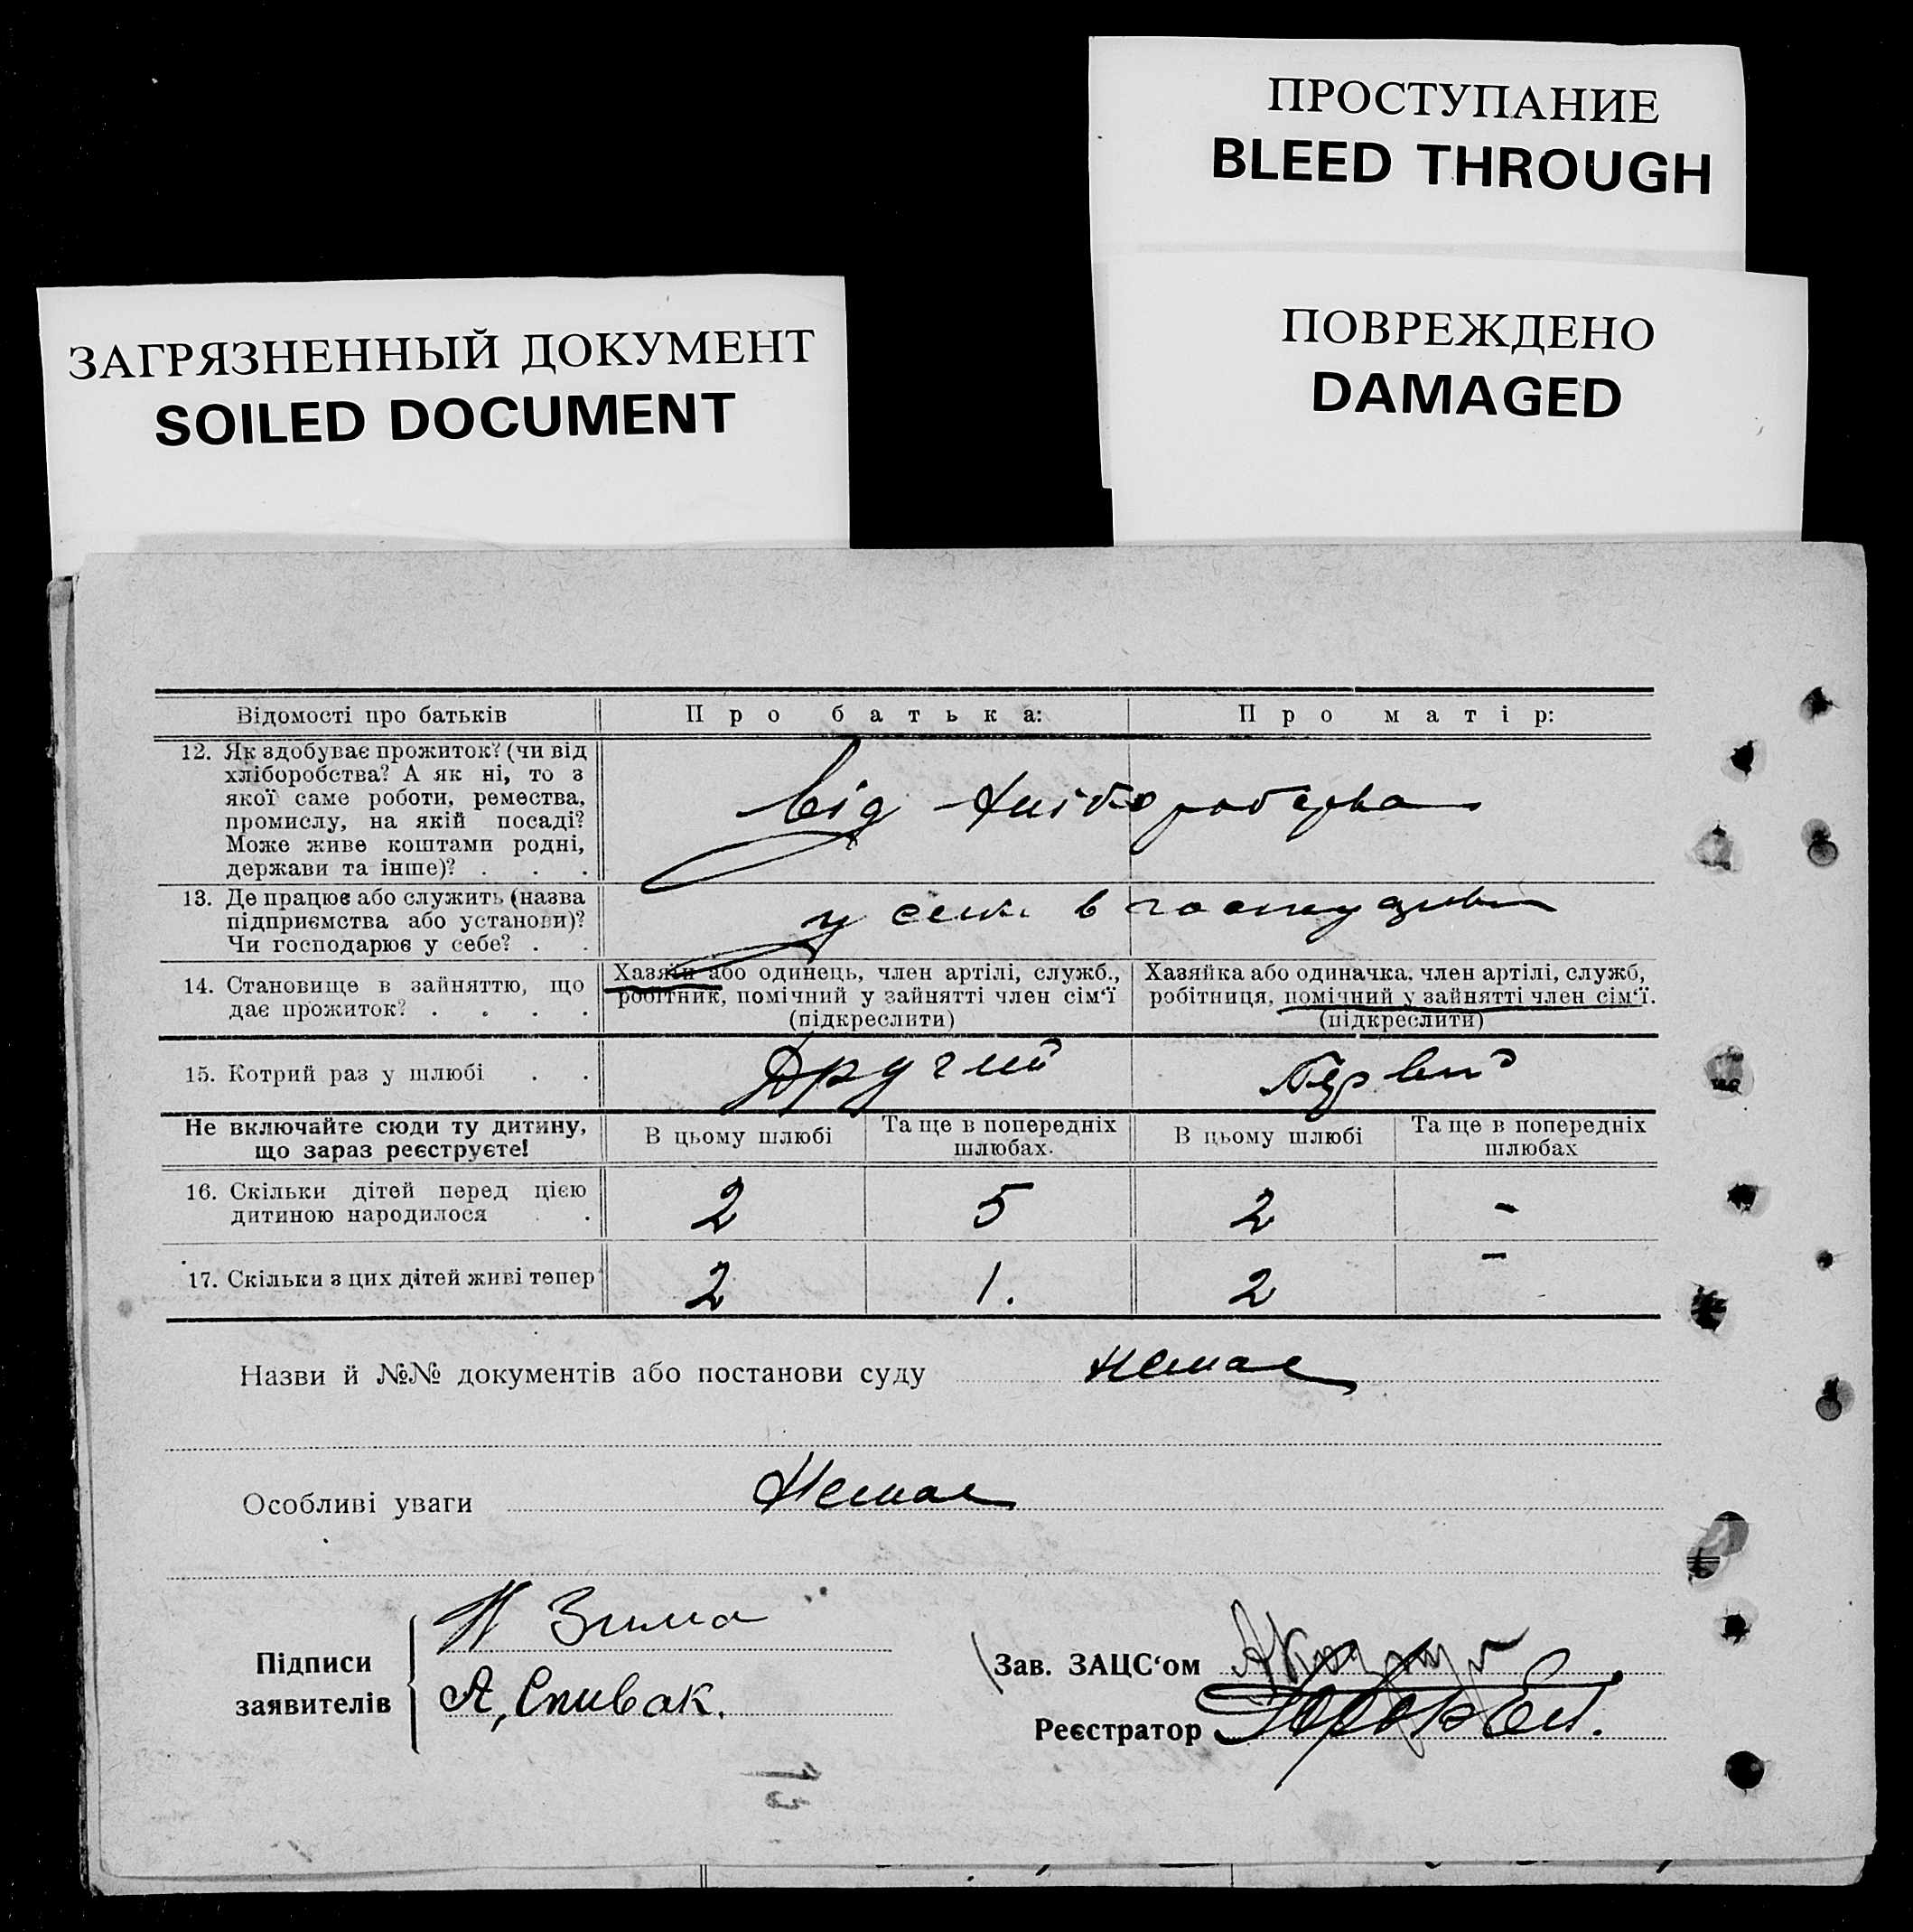 ПРОСТУПАНИЕ
BLEED THROUGH
ПОВРЕЖДЕНО
DAMAGED
ЗАГРЯЗНЕННЫЙ ДОКУМЕНТ
SOILED DOCUMENT
Відомості про батьків Про батька: Про матір:
12. Як здобуває прожиток? (чи від
хліборобства? А як ні, то з
якої саме роботи, ремества,
промислу, на якій посаді?
Може живе коштами родні,
держави та інше)? . . .
від хліборобства
13. Де працює або служить (назва
підприємства або установи)?
Чи господарює у себе? . .
у селі в
14. Становище в зайняттю, що
дає прожиток? . . . .
Хазяїн або одинець, член артілі, служб.,
робітник, помічний у зайнятті член сім‘ї
(підкреслити)
Хазяйка або одиначка, член артілі, служб,
робітниця, помічний у зайнятті член сім‘ї.
(підкреслити)
15. Котрий раз у шлюбі . . Другий Первий
Не включайте сюди ту дитину,
що зараз реєструєте!
В цьому шлюбі
Та ще в попередніх
шлюбах.
В цьому шлюбі
Та ще в попередніх
шлюбах
16. Скільки дітей перед цією
дитиною народилося . .
2 5 2 -
17. Скільки з цих дітей живі тепер 2 1. 2 -
Назви й №№ документів або постанови суду Немає
Особливі уваги Немає
Підписи
заявителів
Н Зима
А, Спивак.
Зав. ЗАЦС‘ом
Реєстратор